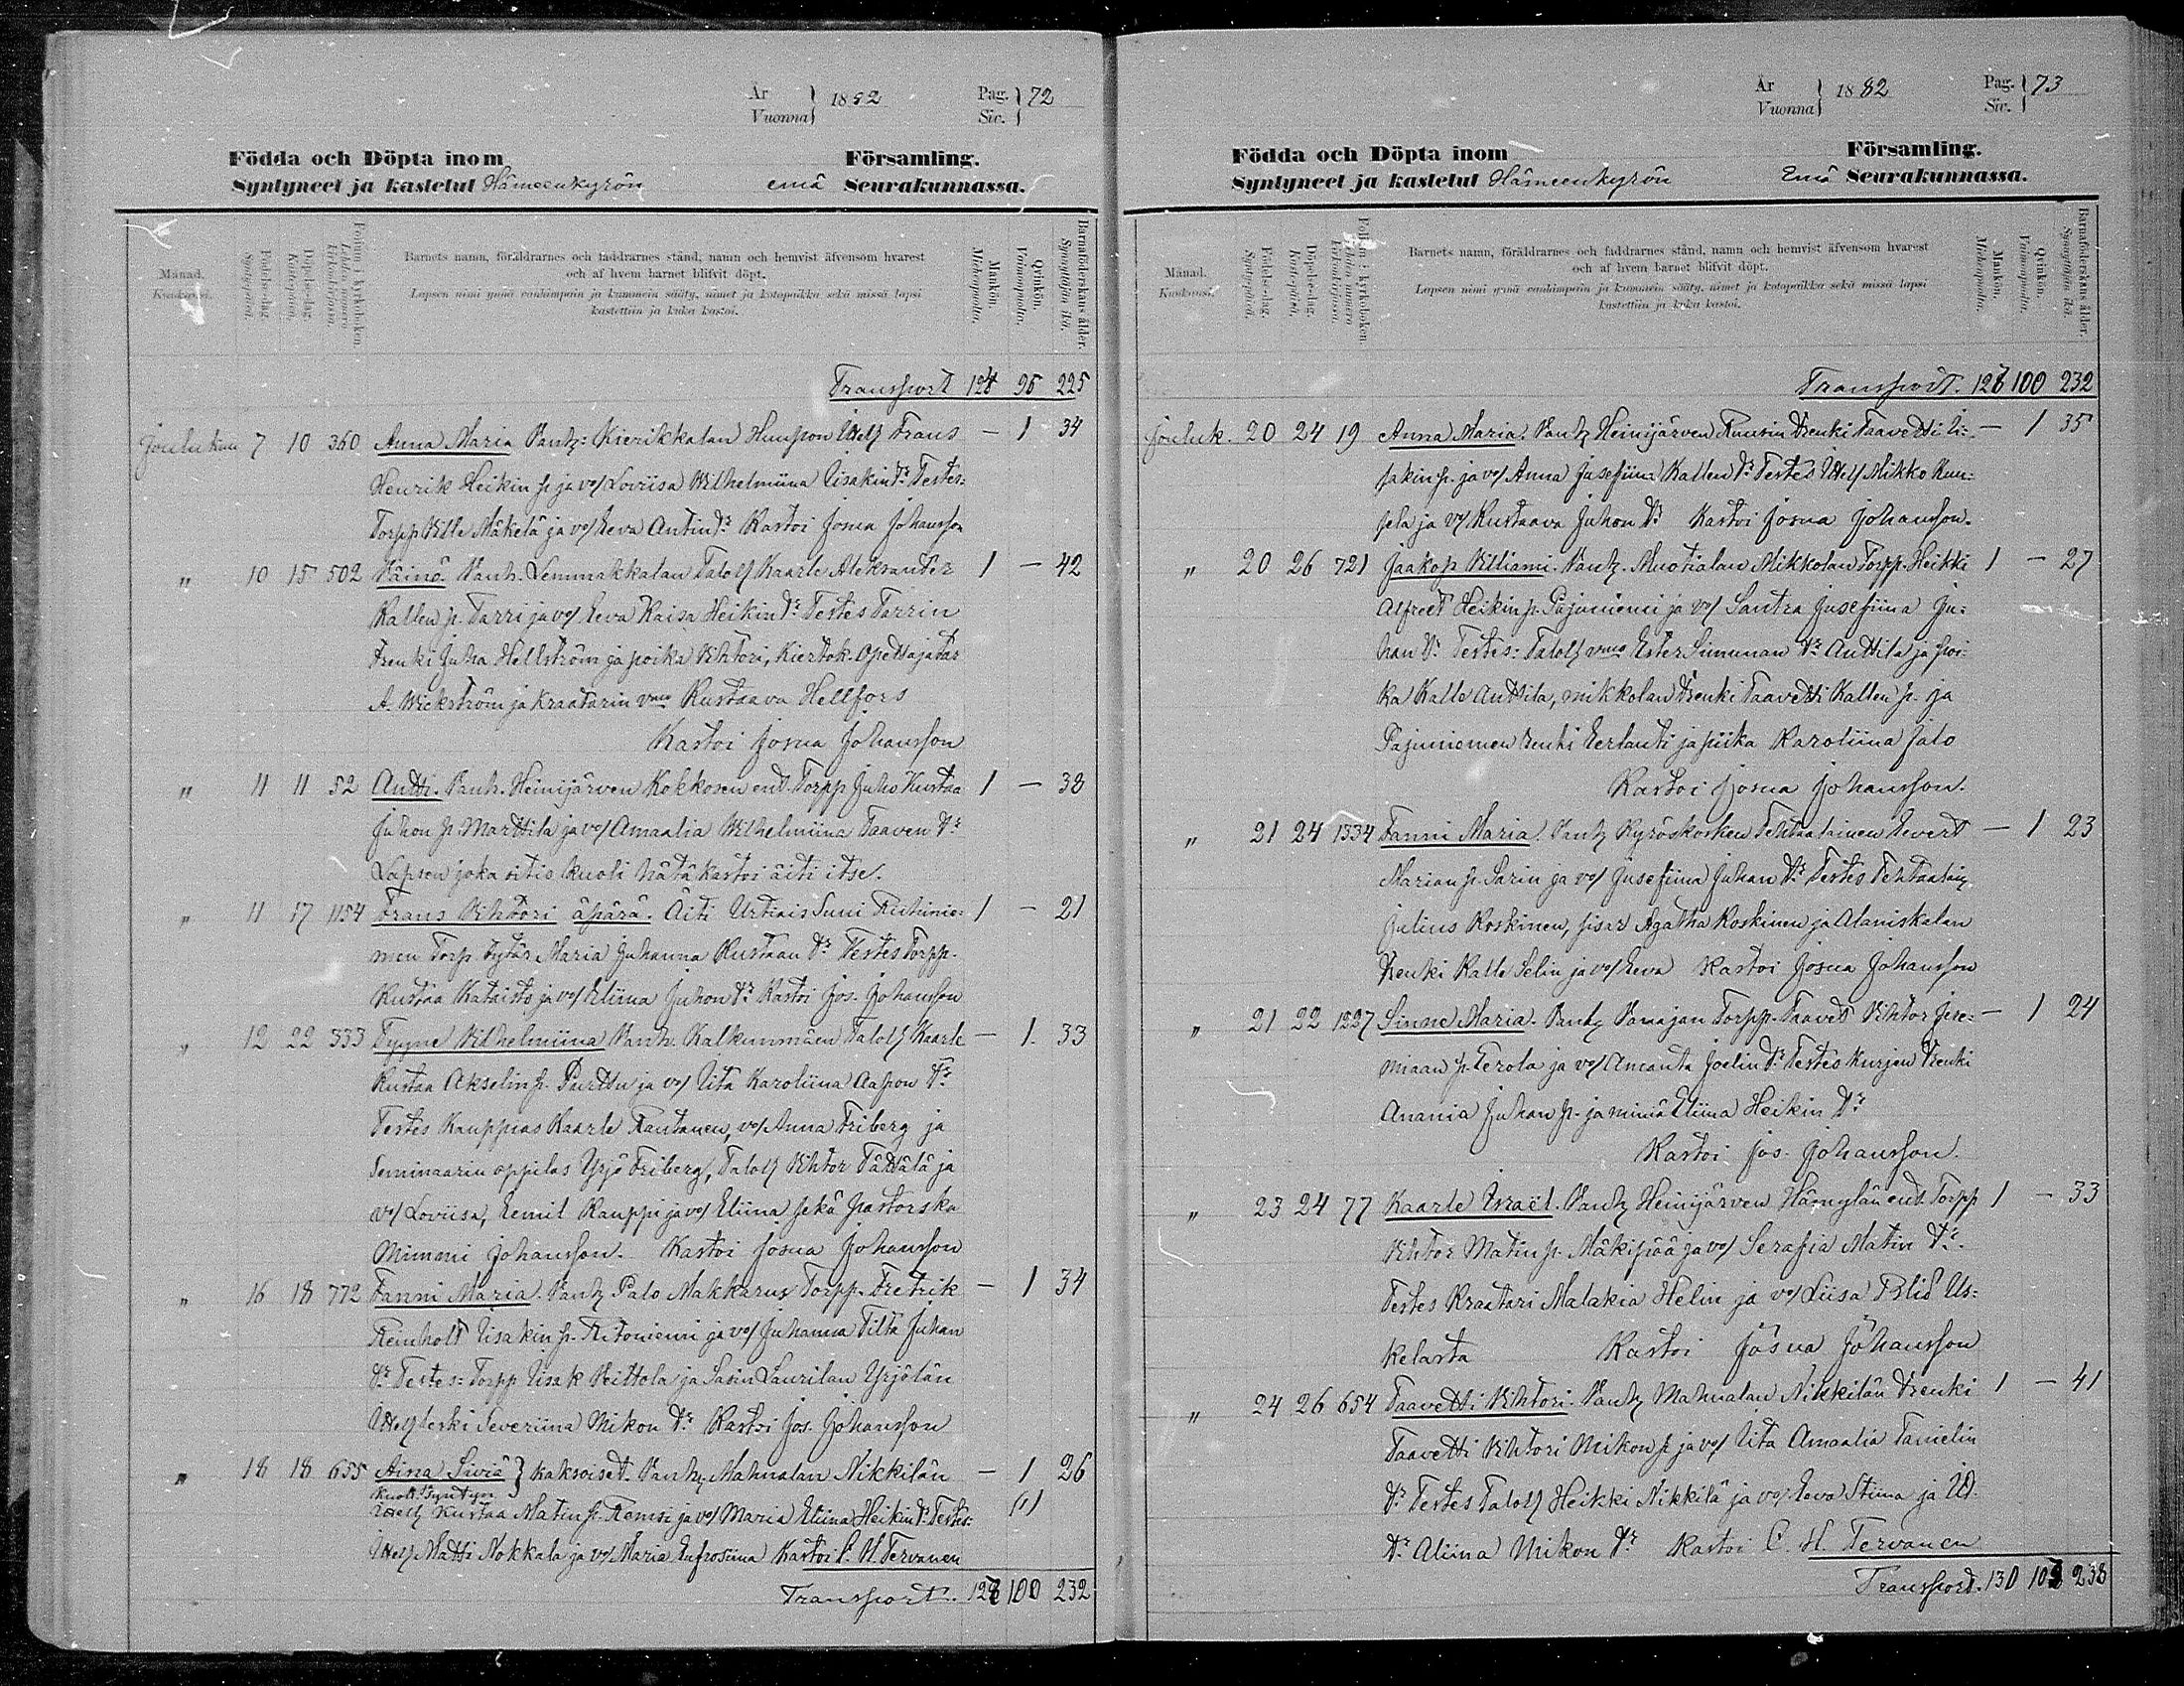 År Vuonna 1882 Pag. Siv. 72
Födda och Döpta inom Församling.
Syntyneet ja kastetut Hämeenkyrön emä Seurakunnassa.
Månad. Kuukausi.
Födelse-dag. Syntypäivä.
Döpelse-dag. Kastepäivä.
Folium i kyrkoboken.
Barnets namn, föräldrarnes och faddrarnes stånd, namn och hemvist äfvensom hvarest
och af hvem barnet blifvit döpt.
Lapsen nimi ynnä vanhempain ja kummein sääty, nimet ja kotopaikka sekä missä lapsi
kastettiin ja kuka kastoi.
Mankön. Miehenpuolta.
Qvinkön. Vaimonpuolta.
Barnaföderskans ålder. Synnyttäjän ikä.
Transport 124 95 225
Jouluk 7 10 360 Anna Maria Vanh: Kierikkalan Frans — 1 34
Henrik Heikin p. ja vo/ Loviisa Wilhelmiina Iisakin Tr Testes:
Torpp Ville Mäkelä ja vo/ Eeva Antin Tr Kastoi Josua Johansson
" 10 15 502 Väinö. Vanh. Lemmakkalan Talol/ Kaarle Aleksanter 1 — 42
Kallen p. Tarri ja vo/ Eeva Kaisa Heikin Tr Testes Tarrin
Trenki Juha Hellström ja poika Vihtori, Kiertok. Opettajatar
A. Wickström ja Kraatarin vmo Kustaava Hellfors
Kastoi Josua Johansson
" 11 11 52 Antti. Vanh. Heinijärven Kokkosen ent. Torpp Juho Kustaa 1 — 38
Juhon p. Marttila ja vo/ Amaalia Wilhelmiina Taaven Tr
Lapsen joka sitio kuoli hätäkastoi äiti itse.
" 11 17 1154 Frans Vihtori äpärä. Äiti Urtiais Suni 1 — 21
men Torp. tytär Maria Juhanna Kustaan Tr Testes Torpp.
Kustaa Kataisto ja vo/ Eliina Juhon Tr Kastoi Jos. Johansson
" 12 22 333 Tyyne Vilhelmiina Vanh. Kalkunmäen Talol/ Kaarle — 1 33
Kustaa Akselin p. Purttu ja vo/ Iita Karoliina Aapon Tr
Testes Kauppias Kaarle Rantanen, vo/ Anna Friberg ja
Seminaarin oppilas Yrjö Friberg, Talol/ Vihtor Tättälä ja
vo/ Loviisa, Eemil Kauppi ja vo/ Eliina sekä pastorska
Mimmi Johansson. Kastoi Josua Johansson
" 16 18 772 Fanni Maria. Vanh Palo Makkarus Torpp. Fretrik — 1 34
Reinholt Iisakin p. Ritoniemi ja vo/ Juhanna Tilta Juhan
Tr Testes: Torpp Iisak Veittola ja Sasin Laurilan Yrjölän
leski Severiina Mikon Tr Kastoi Jos. Johansson
" 18 18 655 Aina Siviä } kaksoiset. Vanh: Mahnalan Nikkilän — 1 26
Kuoll. Syntyn
Kustaa Matin p. Remsi ja vo/ Maria Eliina Heikin Tr Testes: (1)
Matti Nokkala ja vo/ Maria Eufrosiina Kastoi C. H. Tervanen
Transport. 128 100 232
År Vuonna 1882 Pag. Siv. 73
Födda och Döpta inom Församling.
Syntyneet ja kastetut Hämeenkyrön Emä Seurakunnassa.
Månad. Kuukausi.
Födelse-dag. Syntypäivä.
Döpelse-dag. Kastepäivä.
Folium i kyrkoboken.
Barnets namn, föräldrarnes och faddrarnes stånd, namn och hemvist äfvensom hvarest
och af hvem barnet blifvit döpt.
Lapsen nimi ynnä vanhempain ja kummein sääty, nimet ja kotopaikka sekä missä lapsi
kastettiin ja kuka kastoi.
Mankön. Miehenpuolta.
Qvinkön. Vaimonpuolta.
Barnaföderskans ålder. Synnyttäjän ikä.
Transport. 128 100 232
Jouluk. 20 24 19 Anna Maria. Vanh Heinijärven Ruusin Trenki Taavetti Ii- — 1 35
sakin p. ja vo/ Anna Jusefiina Kallen Tr Testes Mikko
ja vo/ Kustaava Juhon Tr Kastoi Josua Johansson.
" 20 26 721 Jaakop Villiami. Vanh. Muotialan Mikkolan Torpp. Heikki 1 — 27
Alfreet Heikin p. Pajuniemi ja vo/ Santra Jusefiina Ju-
han Tr Testes: Talol/ vmo Ester Simunan Tr Anttila ja poi-
ka Kalle Anttila, Mikkolan Trenki Taavetti Kallen p. ja
Pajuniemen renki Eerlanti ja piika Karoliina Jalo
Kastoi Josua Johansson.
" 21 24 1334 Fanni Maria. Vanh Kyröskosken Tehtaalainen Evert — 1 23
Marian p. Sarin ja vo/ Jusefiina Juhan Tr Testes Tehtaalain
Julius Koskinen, sisar Agatha Koskinen ja Alaniskalan
Trenki Kalle Selin ja vo/ Eeva Kastoi Josua Johansson
" 21 22 1227 Sinne Maria. Vanh Vanajan Torpp. Taavet Vihtor Jere- — 1 24
miaan p. Terola ja vo/ Amanta Joelin Tr Testes Kurjen Trenki
Anania Juhan p. ja miniä Eliina Heikin Tr
Kastoi Jos. Johansson.
" 23 24 77 Kaarle Israël. Vanh Heinijärven Hämylän ent. Torpp 1 — 33
Vihtor Matin p. Mäkipää ja vo/ Serafia Matin Tr.
Testes Kraatari Malakia Helin ja vo/ Liisa Blid Us-
kelasta Kastoi Josua Johansson
" 24 26 654 Taavetti Vihtori. Vanh Mahnalan Nikkilän Trenki 1 — 41
Taavetti Vihtori Mikon p. ja vo/ Iita Amaalia Tanielin
Tr Testes Talol/ Heikki Nikkilä ja vo/ Eeva Stiina ja
Tr Aliina Mikon Tr Kastoi C. H. Tervanen
Transport. 130 103 238